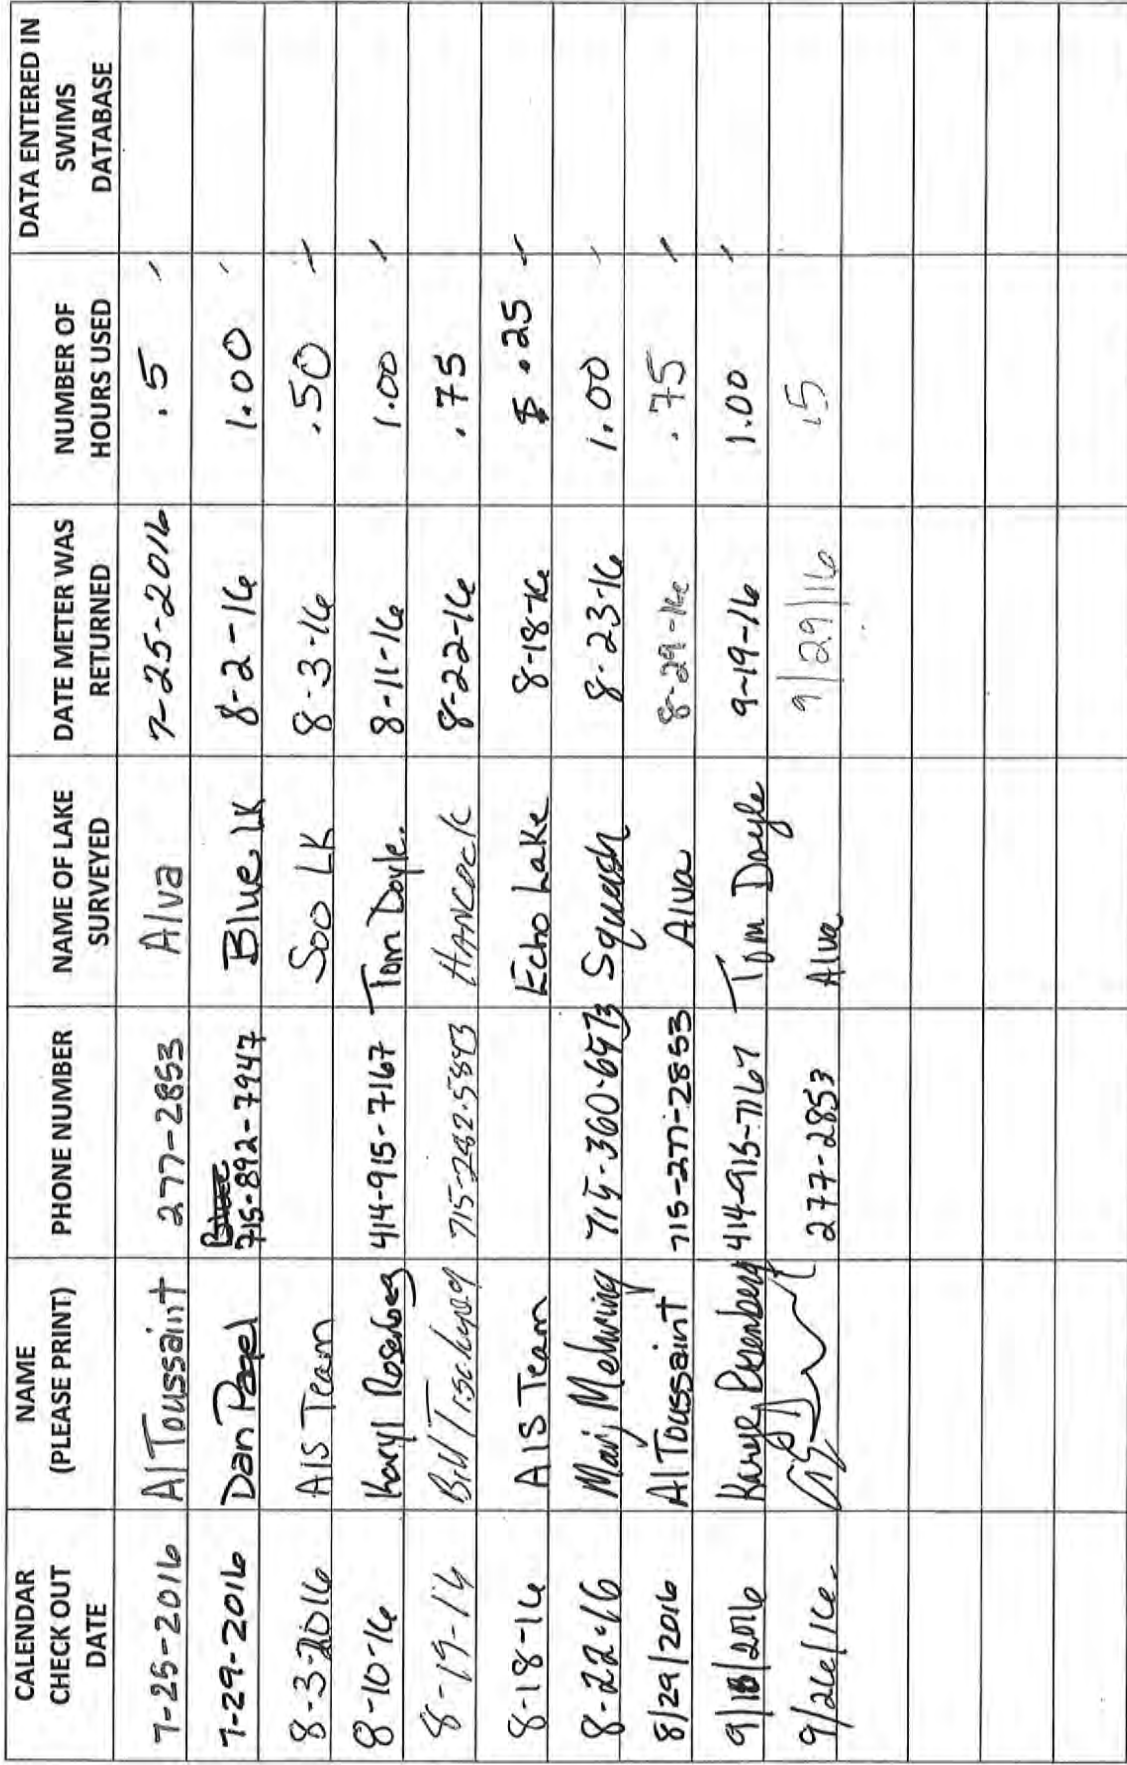 CALENDAR CHECK OUT DATE | NAME (PLEASE PRINT) | PHONE NUMBER | NAME OF LAKE SURVEYED | DATE METER WAS RETURNED | NUMBER OF HOURS USED | DATA ENTERED IN SWIMS DATABASE
7-25-2016 Al Toussaint 277-2853 Alva 7-25-2016 .5
7-29-2016 Dan Pagel 715-892-7947 Blue LK 8-2-16 1.00
8-3-2016 AIS Team Soo LK 8-3-16 .50
8-10-16 Karyl Rosenberg 414-915-7167 Tom Doyle 8-11-16 1.00
8-19-16 Bill 715-282-5843 HANCOCK 8-22-16 .75
8-18-16 AIS Team Echo Lake 8-18-16 .25
8-22-16 Marj Mehring 715-360-6973 Squash 8-23-16 1.00
8/29/2016 Al Toussaint 715-277-2853 Alva 8-29-16 .75
9/18/2016 Karyl Rosenberg 414-915-7167 Tom Doyle 9-19-16 1.00
9/26/16. 277-2853 Alva 9/29/16 .5